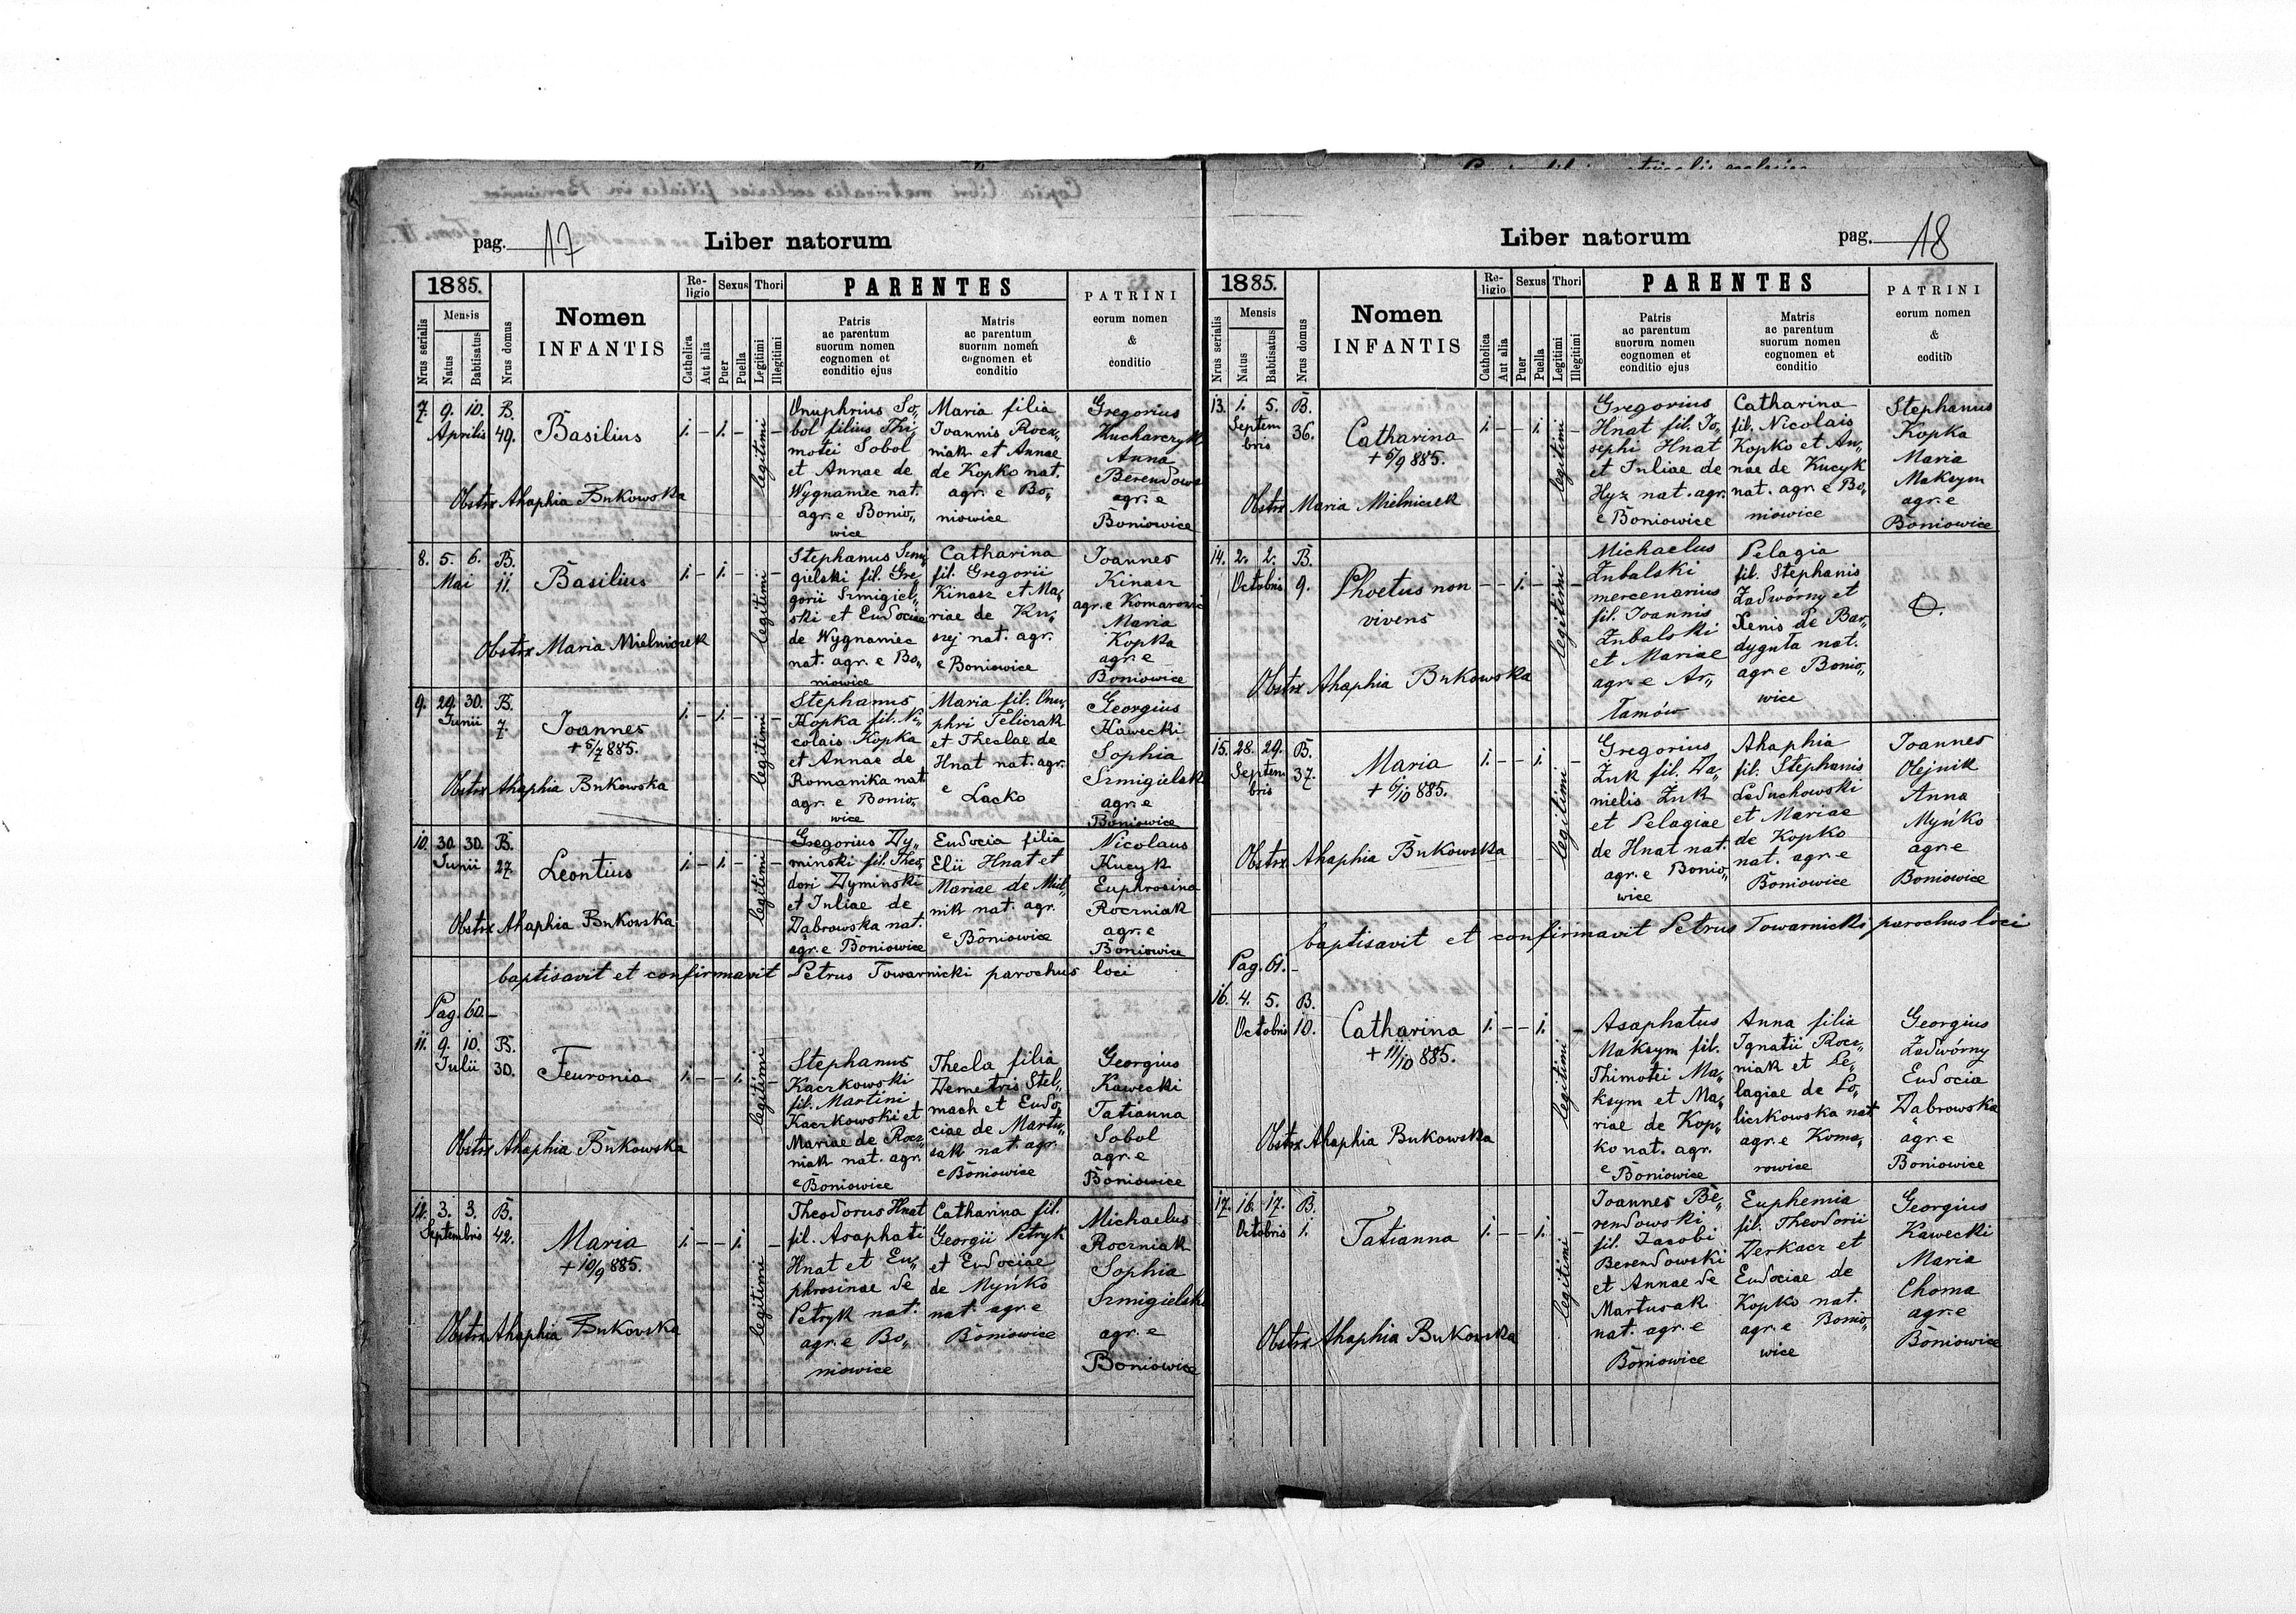 pag. 17
Liber natorum
1885.
Nrus serialis
Mensis
Natus
Babtisatus
Nrus domus
Nomen
INFANTIS
Religio
Catholica
Aut alia
Sexus
Puer
Puella
Thori
Legitimi
Illegitimi
PARENTES
Patris
ac parentum
suorum nomen
cognomen et
conditio ejus
Matris
ac parentum
suorum nomen
cognomen et
conditio
PATRINI
eorum nomen
&
conditio
7. 9. 10. B.
Aprilis 49.
Basilius
1. – 1. –
legitimi
Onuphrius So„
bol filius Thi„
motei Sobol
et Annae de
Wygnamiec nat.
agr. e Bonio„
wice
Maria filia
Joannis Rocz„
niak et Annae
de Kopko nat.
agr. e Bo„
niowice
Gregorius
Kucharczyk
Anna
Berendowa
agr. e
Boniowice
Obstrx Ahaphia Bukowska
8. 5. 6. B.
Mai 11.
Basilius
1. – 1. –
legitimi
Stephanus Szmi„
gielski fil. Gre„
gorii Szmigiel„
ski et Eudociae
de Wygnamiec
nat. agr. e Bo„
niowice
Catharina
fil. Gregorii
Kinasz et Ma„
riae de Ku„
szej nat. agr.
e Boniowice
Joannes
Kinasz
agr. e Komarowice
Maria
Kopka
agr. e
Boniowice
Obstrx Maria Mielniczek
9. 29. 30. B.
Junii 7.
Joannes
+ 5/7 885.
1. – 1. –
legitimi
Stephanus
Kopka fil. Ni„
colais Kopka
et Annae de
Romanika nat
agr. e Bonio„
wice
Maria fil. Onu„
phri Teliczak
et Theclae de
Hnat nat. agr.
e Lacko
Georgius
Kawecki
Sophia
Szmigielska
agr. e
Boniowice
Obstrx Ahaphia Bukowska
10. 30. 30. B.
Junii 27.
Leontius
1. – 1. –
legitimi
Gregorius Dy„
minski fil. Theo„
dori Dyminski
et Juliae de
Dąbrowska nat.
agr. e Boniowice
Eudocia filia
Elii Hnat et
Mariae de Miel„
nik nat. agr.
e Boniowice
Nicolaus
Kucyk
Euphrosina
Roczniak
agr. e
Boniowice
Obstrx Ahaphia Bukowska
baptisavit et confirmavit Petrus Towarnicki parochus loci
Pag. 60.–
11. 9. 10. B.
Julii 30.
Feuronia
1. – – 1.
legitimi
Stephanus
Kaczkowski
fil. Martini
Kaczkowski et
Mariae de Rocz„
niak nat. agr.
e Boniowice
Thecla filia
Demetris Stel„
mach et Eudo„
ciae de Martu„
sak nat. agr.
e Boniowice
Georgius
Kawecki
Tatianna
Sobol
agr. e
Boniowice
Obstrx Ahaphia Bukowska
12. 3. 3. B.
Septembris 42.
Maria
+ 10/9 885.
1. – – 1.
legitimi
Theodorus Hnat
fil. Asaphati
Hnat et Eu„
phrosinae de
Petryk nat.
agr. e Bo„
niowice
Catharina fil.
Georgii Petryk
et Eudociae
de Myńko
nat. agr. e
Boniowice
Michaelus
Roczniak
Sophia
Szmigielska
agr. e
Boniowice
Obstrx Ahaphia Bukowska
Liber natorum
pag. 18
1885.
Nrus serialis
Mensis
Natus
Babtisatus
Nrus domus
Nomen
INFANTIS
Religio
Catholica
Aut alia
Sexus
Puer
Puella
Thori
Legitimi
Illegitimi
PARENTES
Patris
ac parentum
suorum nomen
cognomen et
conditio ejus
Matris
ac parentum
suorum nomen
cognomen et
conditio
PATRINI
eorum nomen
&
coditio
13. 1. 5. B.
Septem
bris 36.
Catharina
+ 6/9 885.
1. – – 1.
legitimi
Gregorius
Hnat fil. Jo„
sephi Hnat
et Juliae de
Hyz nat. agr.
e Boniowice
Catharina
fil. Nicolais
Kopko et An„
nae de Kucyk
nat. agr. e Bo„
niowice
Stephanus
Kopka
Maria
Maksym
agr. e
Boniowice
Obstrx Maria Mielniczek
14. 2. 2. B.
Octobris 9.
Phoetus non
vivens
– – 1. –
legitimi
Michaelus
Zubalski
mercenarius
fil. Joannis
Zubalski
et Mariae
agr. e Ar„
łamów
Pelagia
fil. Stephanis
Zadwórny et
Xenis de Bar„
dyguła nat.
agr. e Bonio„
wice
Obstrx Ahaphia Bukowska
15. 28. 29. B.
Septem
bris 37.
Maria
+ 6/10 885.
1. – – 1.
legitimi
Gregorius
Zuk fil. Da„
nielis Zuk
et Pelagiae
de Hnat nat.
agr. e Bonio„
wice
Ahaphia
fil. Stephanis
Leduchowski
et Mariae
de Kopko
nat. agr. e
Boniowice
Joannes
Olejnik
Anna
Myńko
agr. e
Boniowice
Obstrx Ahaphia Bukowska
baptisavit et confirmavit Petrus Towarnicki, parochus loci
Pag. 61.–
16. 4. 5. B.
Octobris 10.
Catharina
+ 11/10 885.
1. – – 1.
legitimi
Asaphatus
Maksym fil.
Thimotei Ma„
ksym et Ma„
riae de Kop„
ko nat. agr.
e Boniowice
Anna filia
Ignatii Rocz„
niak et Pe„
lagiae de Lo„
liczkowska nat
agr. e Koma„
rowice
Georgius
Zadwórny
Eudocia
Dąbrowska
agr. e
Boniowice
Obstrx Ahaphia Bukowska
17. 16. 17. B.
Octobris 1.
Tatianna
1. – – 1.
legitimi
Joannes Be„
rendowski
fil. Jacobi
Berendowski
et Annae de
Martusak
nat. agr. e
Boniowice
Euphemia
fil. Theodorii
Derkacz et
Eudociae de
Kopko nat.
agr. e Bonio„
wice
Georgius
Kawecki
Maria
Choma
agr. e
Boniowice
Obstrx Ahaphia Bukowska